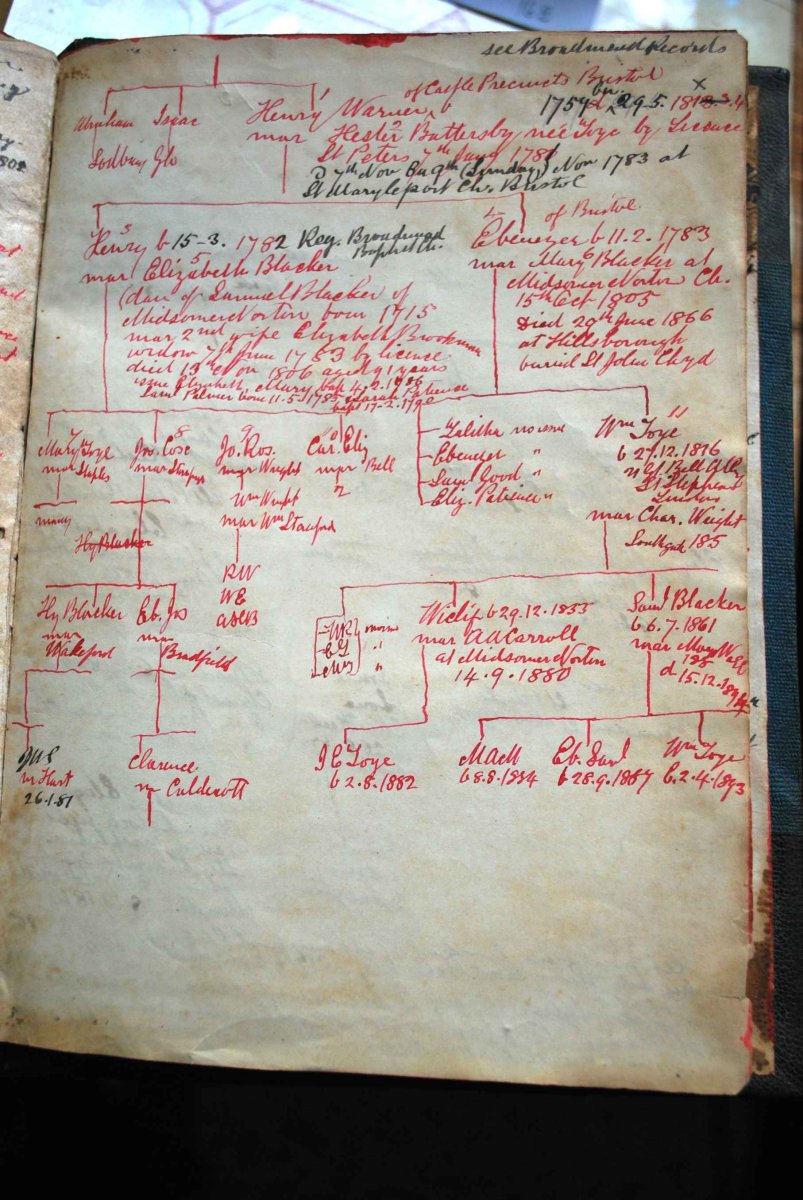 see Broadmead Records
of Castle Precincts Bristol
Abraham Isaac
Sodbury Glo
Henry Warner b 1754 bur 29.5.
mar Hester Battersby nee Toye by Licence
St Peters 7th
7th Nov 9th (Sunday) Nov 1783 at
St Maryleport Ch. Bristol
3
Henry b 15-3. 1782 Reg. Broadmead
Baptist Ch.
5
mar Elizabeth Blacker
(dau of Samuel Blacker of
Midsomer Norton born 1715
mar 2nd wife Elizabeth Brookman
widow 7th June 1753 by licence
died 13th Nov 1806 aged 91 years
issue Elizabeth, Mary bap 4.2.1786
Saml Palmer born 11.5.1785 Sarah Patience
bapt 17-2-1790
4
of Bristol
Ebenezer b 11.2.1783
6
mar Mary Blacker at
Midsomer Norton Ch.
15th Oct 1805
Died 29th June 1866
at Hillsborough
buried St John Clyd
7
Mary Toye
mar Staples
many
8
Jos. Cose
mar
Hy Blacker
9
Jo. Ros.
mar Wright
Wm Wright
mar Wm Stanford
RW
WE
10
Car. Eliz
mar Bell
Talitha no issue
Ebenezer "
Saml Good "
Eliz. Patience "
11
Wm Toye
b 27.12.1816
21 Bell Alley
St Stephens
London
mar Char. Weight
Southgate 185
Hy Blacker
mar
Wakeford
Eb. Jos
mar
Bradfield
Wiclif b 29.12.1855
mar A A Carroll
at Midsomer Norton
14.9.1880
Saml Blacker
b 6.7.1861
mar Mary Wall
188
d 15.12.
m Hart
26.1.81
Clarence
m Caldecott
J E Toye
b 2.8.1882
MAM
b 8.8.1884
Eb. Saml
b 28.9.1887
Wm Toye
b. 2.4.1893